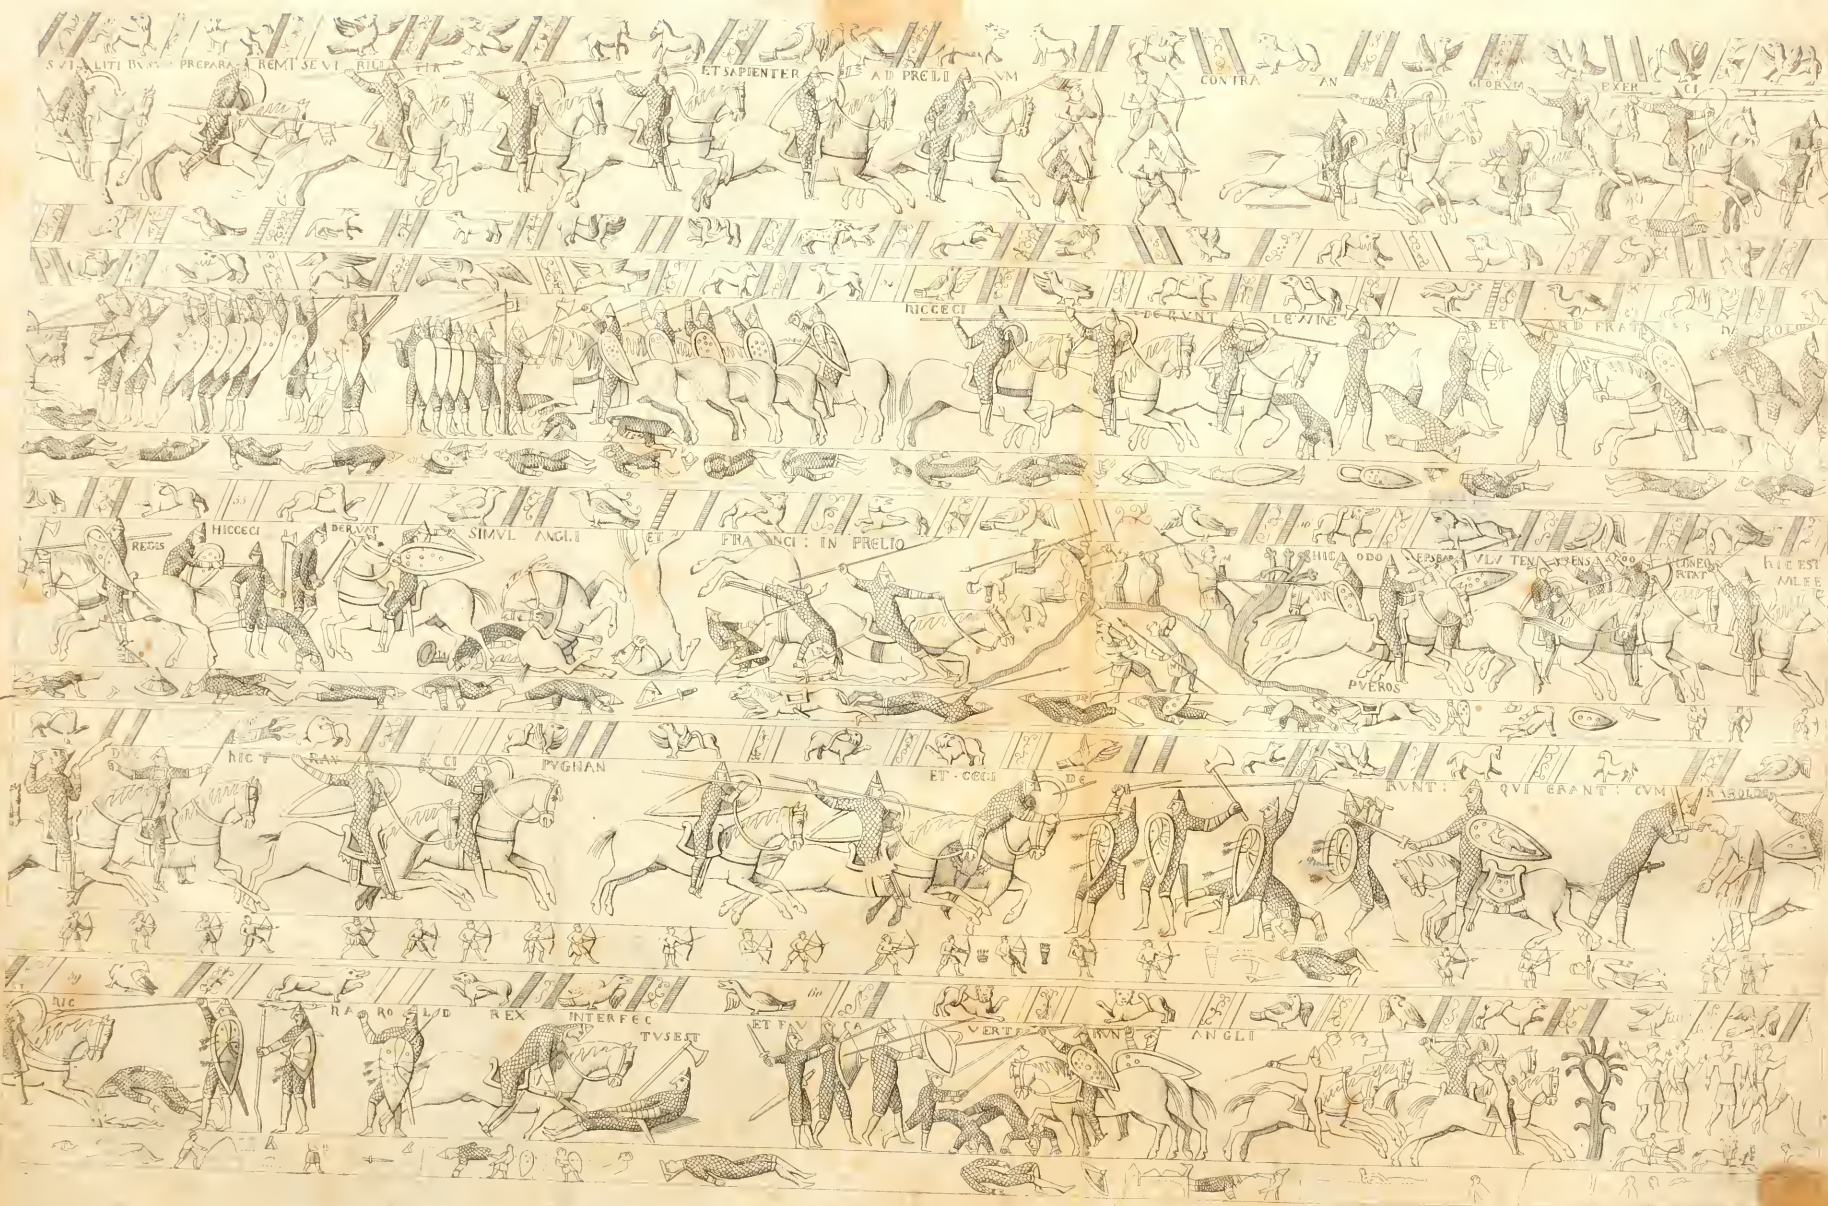 SVI LITI BVS PREPARA REMT SE VI RILI TIR ET SAPIENTER AD PRELI VM CONTRA AN GLORVM EXER CI
HICCECI DERVNT LEWINE ET ARD FRAT S HA ROLDI
REGIS HICCECI DERVNT SIMVL ANGLI ET FRA NCI : IN PRELIO HIC ODO EPS BA VLV TEN CONFO RTAT PVEROS HIC EST
DVX HIC F RAN CI PVGNAN ET · CECI DE RVNT : QVI ERANT : CVM HAROLDO
59 60
HIC HA RO L D REX INTERFEC TVS EST ET FV CA VERTE RVN ANGLI